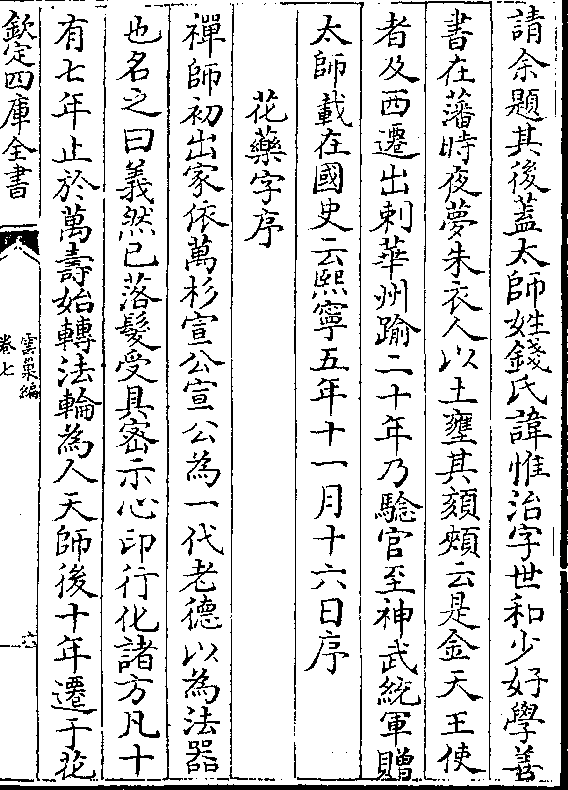 請余題其後蓋太師姓錢氏諱惟治字世和少好學善
書在藩時夜夢朱衣人以土壅其頦頰云是金天王使
者及西遷出刺華州踰二十年乃驗官至神武統軍贈
太師載在國史云熙寧五年十一月十六日序
花藥字序
禪師初出家依萬杉宣公宣公為一代老德以為法器
也名之曰義然已落髮受具密示心印行化諸方凡十
有七年止於萬壽始轉法輪為人天師後十年遷于花
欽定四庫全書
雲巢編
卷七
六